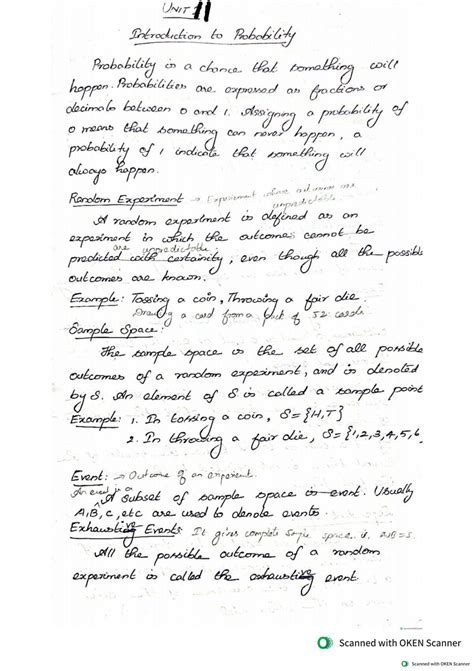 UNIT 11
Introduction to Probability
Probability is a chance that something will
happen. Probabilities are expressed as fractions or
decimals between 0 and 1. Assigning a probability of
0 means that something can never happen, a
probability of 1 indicate that something will
always happen.
Random Experiment → Experiment whose outcomes are
unpredictable
A random experiment is defined as an
experiment in which the outcomes cannot be
are unpredictable
predicted with certainity, even though all the possible
outcomes are known.
Example: Tossing a coin, Throwing a fair die.
Drawing a card from a pack of 52 cards
Sample Space:
The sample space is the set of all possible
outcomes of a random experiment, and is denoted
by S. An element of S is called a sample point
Example: 1. In tossing a coin, S = {H,T}
2. In throwing a fair die, S = {1,2,3,4,5,6
Event: → Outcome of an experiment.
An event is a
A subset of sample space is event. Usually
A,B,C,etc are used to denote events.
Exhausting Events: It gives complete sample space. is. AUB=S.
All the possible outcome of a random
experiment is called the exhausting event.
Scanned with OKEN Scanner
Scanned with OKEN Scanner